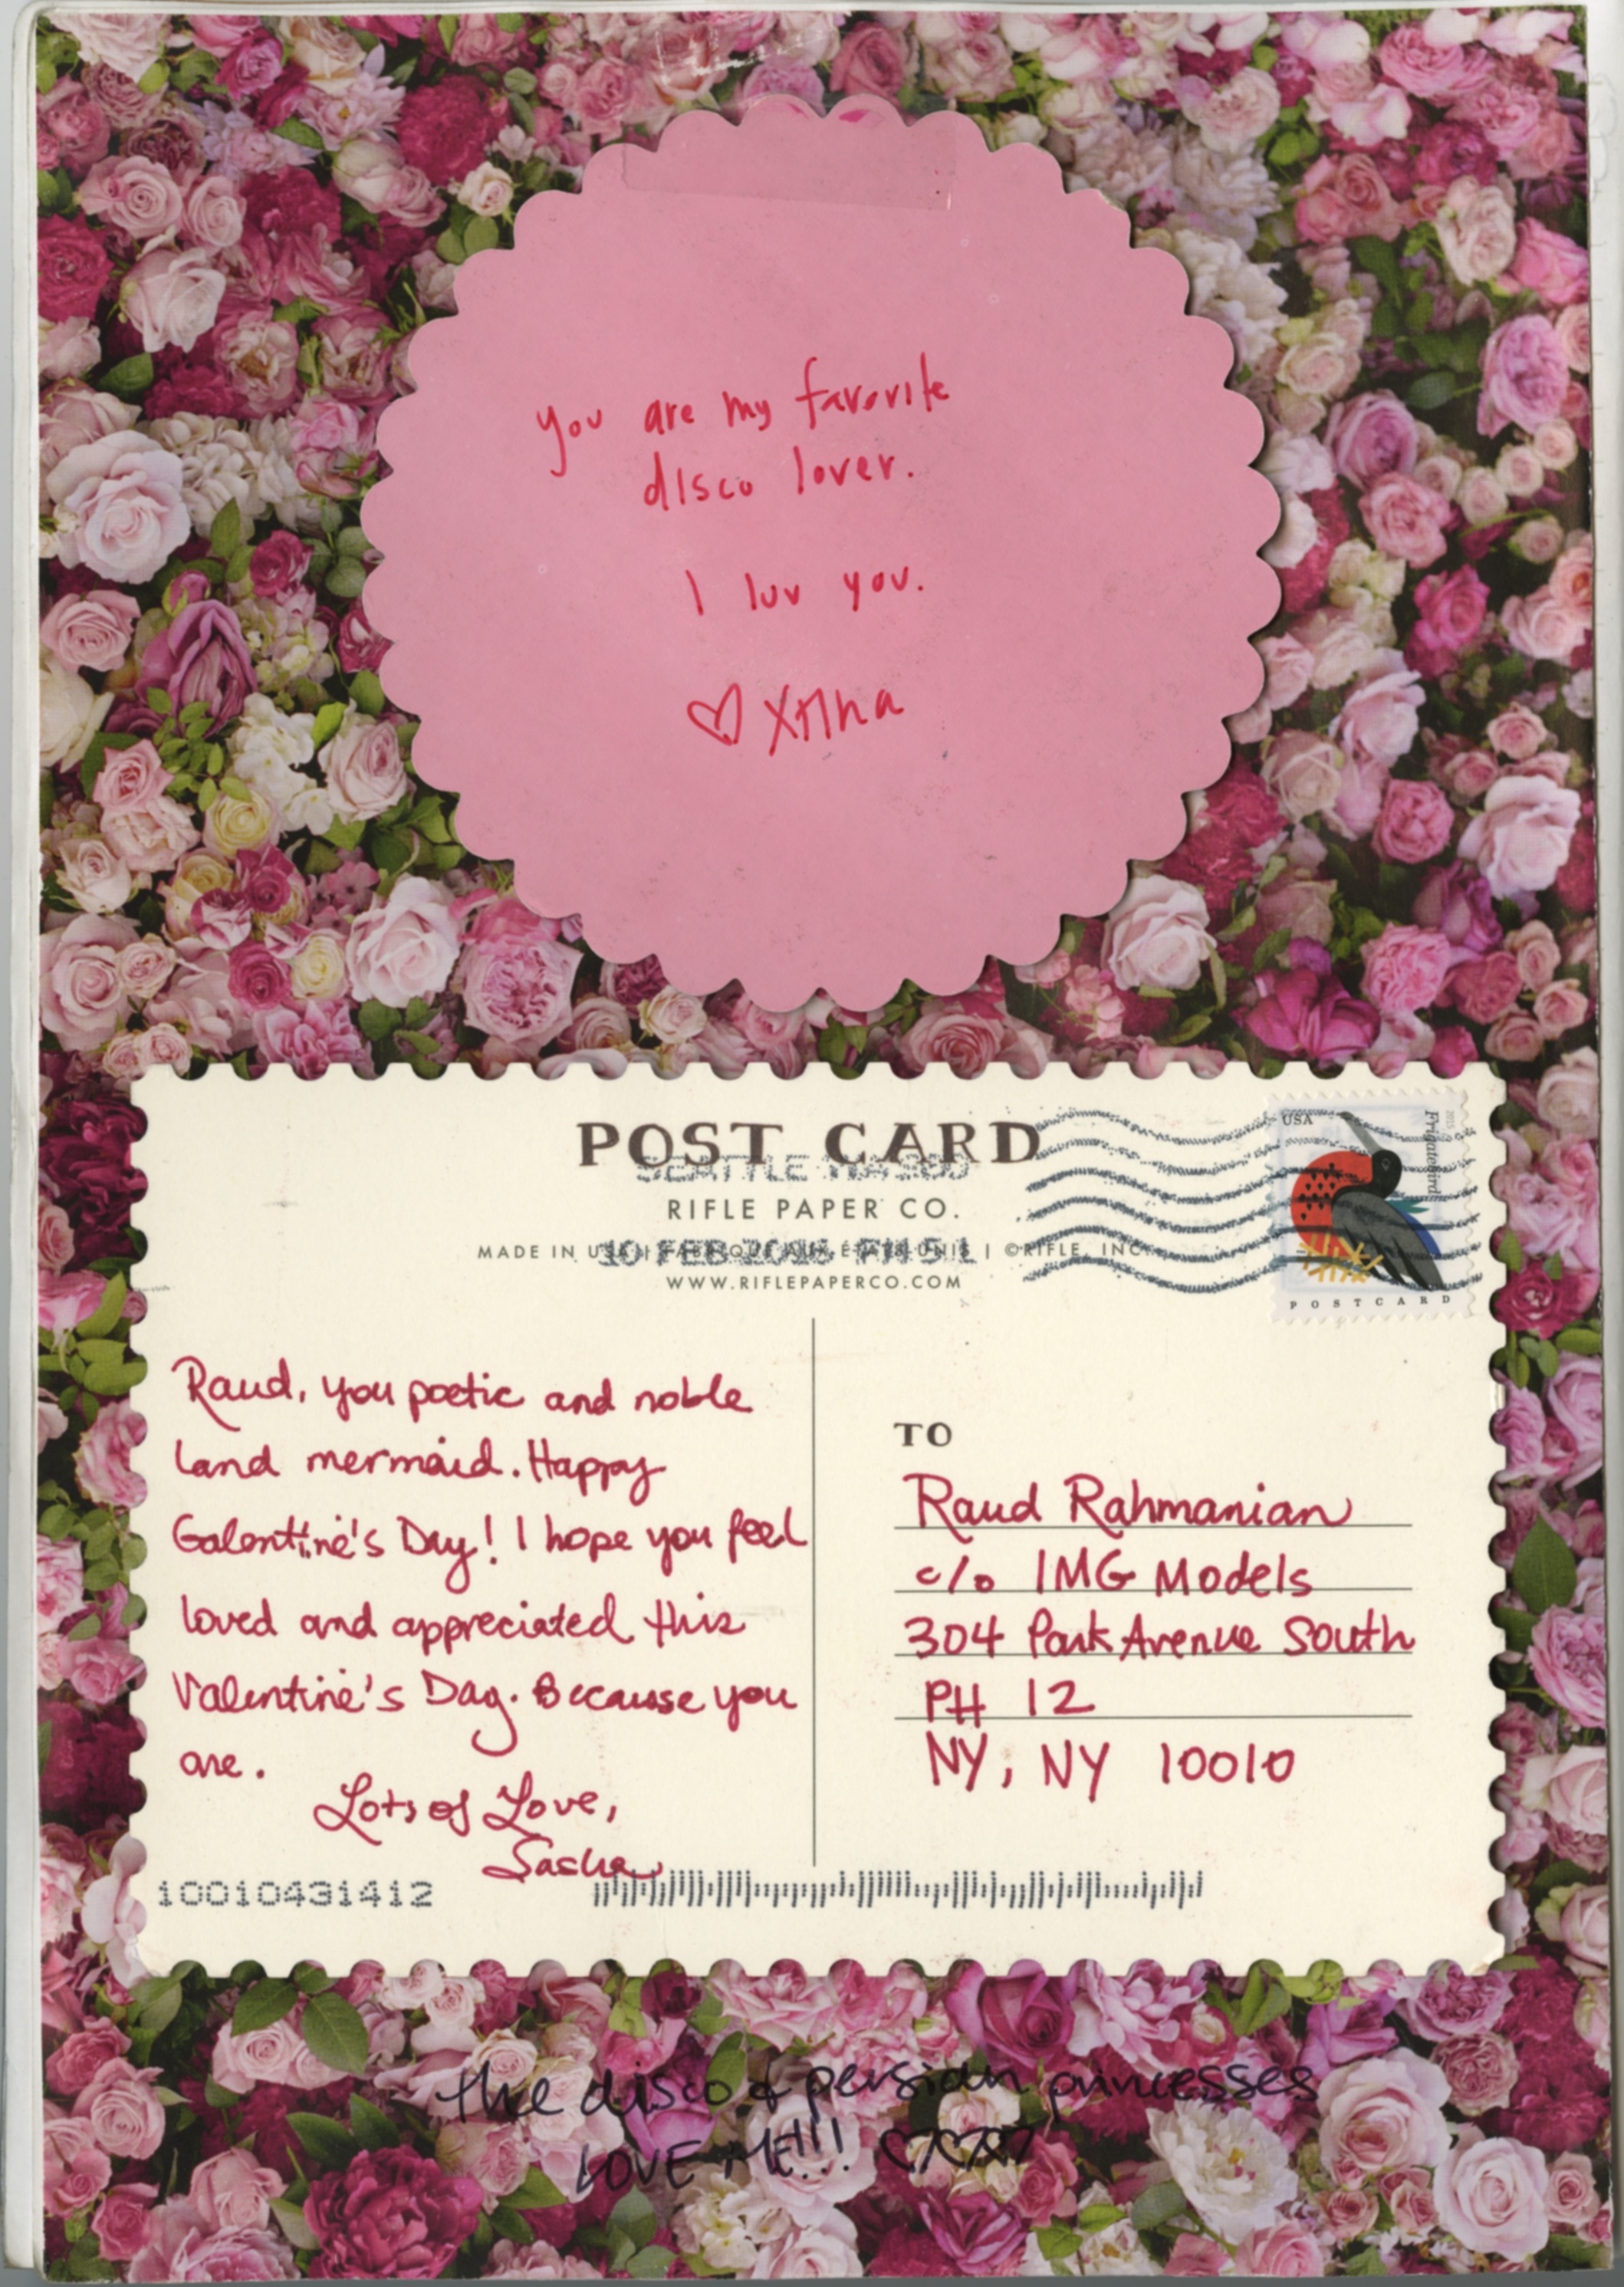 you are my favorite
disco lover.
I luv you.
♡ XTINA
POST CARD
SEATTLE WA 980
RIFLE PAPER CO.
MADE IN USA | FABRIQUÉ AUX ÉTATS-UNIS | ©RIFLE, INC.
10 FEB 2016 PM 5 L
WWW.RIFLEPAPERCO.COM
USA
Frigatebird
2015
POSTCARD
Raud, you poetic and noble
land mermaid. Happy
Galentine's Day! I hope you feel
loved and appreciated this
Valentine's Day. Because you
are.
Lots of Love,
Sasha
TO
Raud Rahmanian
c/o IMG Models
304 Park Avenue South
PH 12
NY, NY 10010
10010431412
the disco & persian princesses
LOVE ME!!! ♡♡♡♡